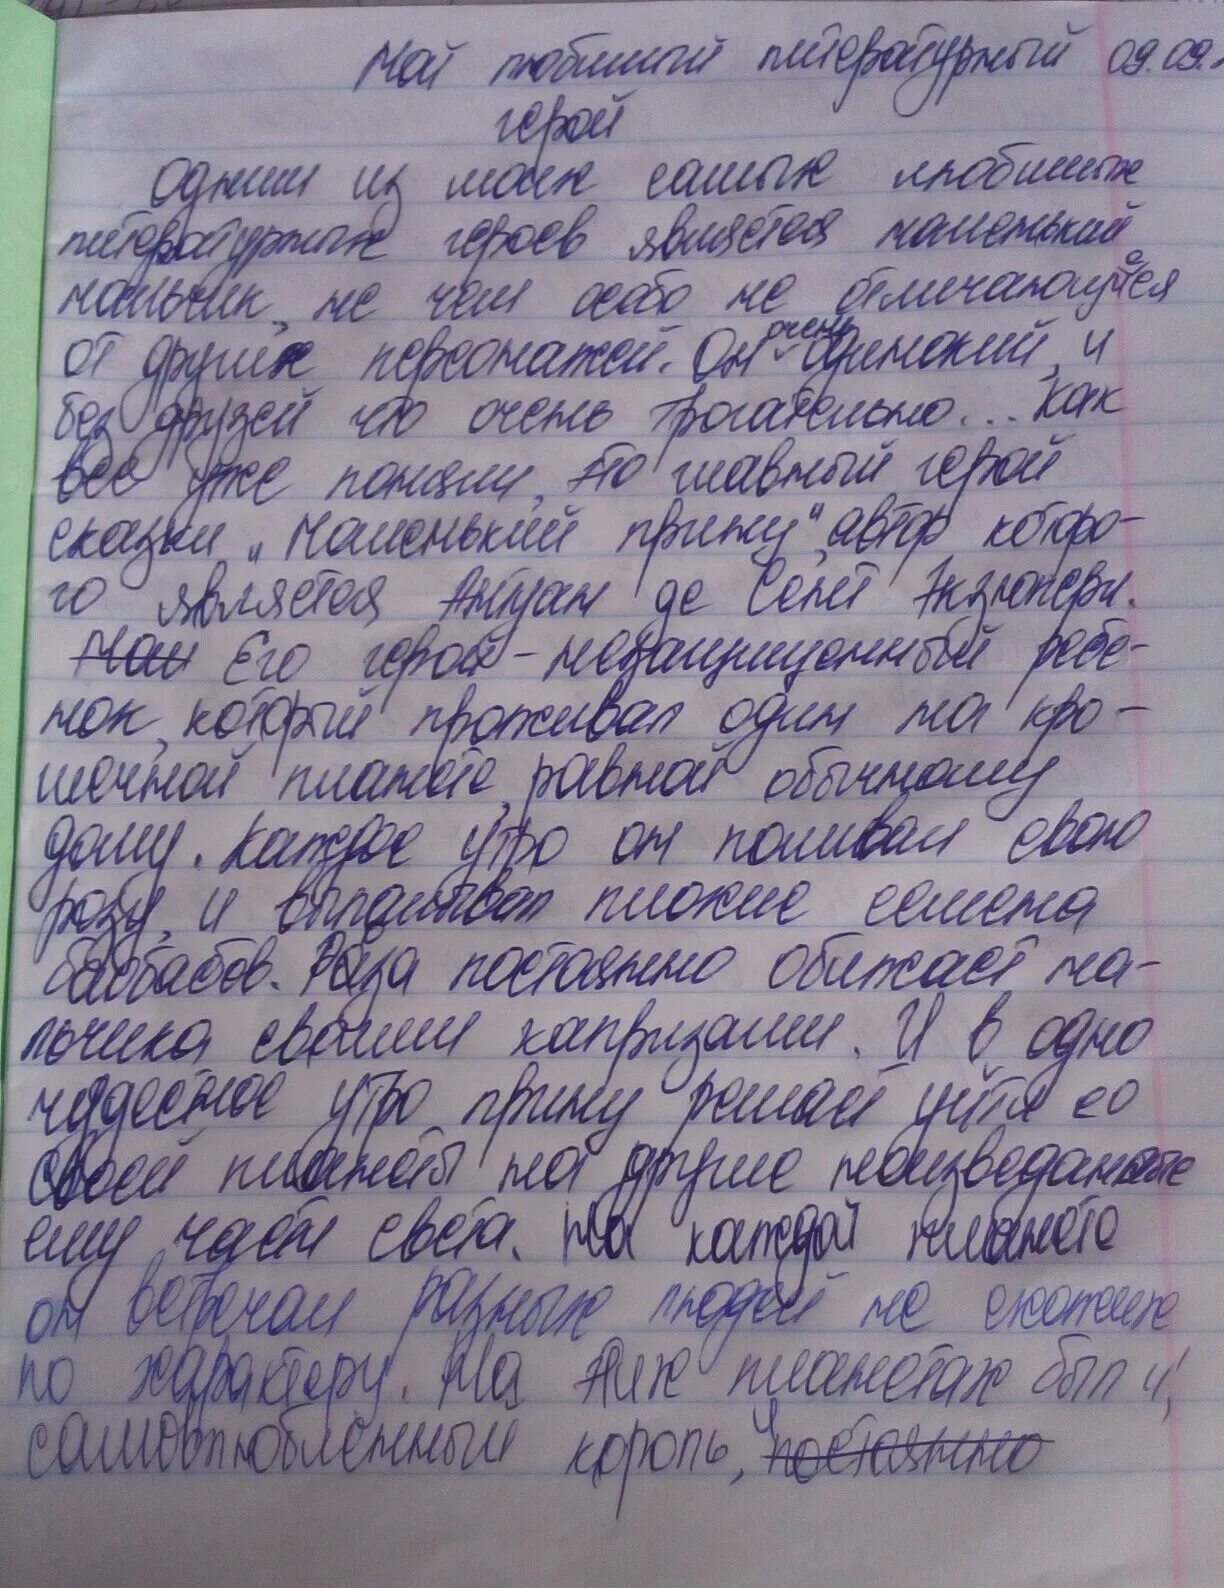 Мой любимый литературный 09.09.
герой
Одним из моих самых любимых
литературных героев является маленький
мальчик, не чем особо не отличающийся
от других персонажей. Он очень одинокий, и
без друзей что очень трогательно... Как
все уже поняли, это главный герой
сказки „Маленький принц", автор которо-
го является Антуан де Сент Экзюпери.
Мал Его герой - незащищенный ребе-
нок, который проживал один на кро-
шечной планете, равной обычному
дому. Каждое утро он поливал свою
розу, и выпалывал плохие семена
баобабов. Роза постоянно обижает ма-
льчика своими капризами. И в одно
чудесное утро принц решает уйти со
своей планеты на другие неизведанные
ему части света. На каждой планете
он встречал разных людей не схожих
по характеру. На этих планетах был и
самовлюбленный король, постоянно